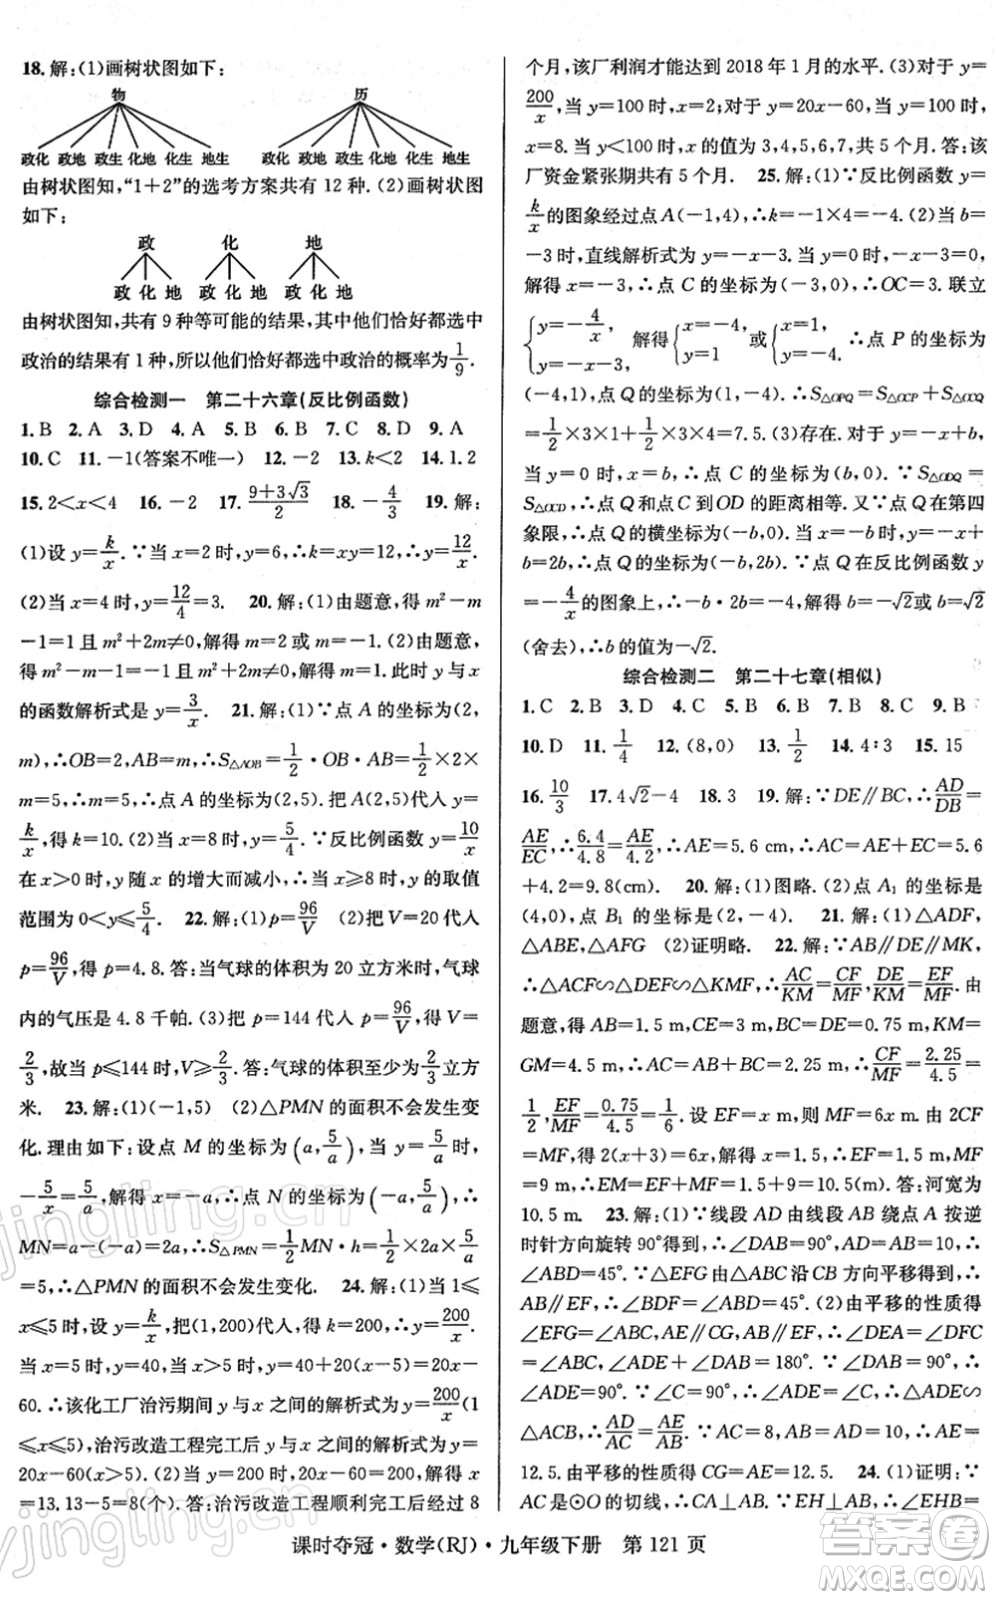 18. 解:(1)画树状图如下:
物 历
政化 政地 政生 化地 化生 地生 政化 政地 政生 化地 化生 地生
由树状图知,“1+2”的选考方案共有 12 种. (2)画树状图
如下:
政 化 地
政 化 地 政 化 地 政 化 地
由树状图知,共有 9 种等可能的结果,其中他们恰好都选中
政治的结果有 1 种,所以他们恰好都选中政治的概率为1/9.
综合检测一 第二十六章(反比例函数)
1. B 2. A 3. D 4. A 5. B 6. B 7. D 8. D 9. A
10. C 11. -1(答案不唯一) 12. -2 13. k<2 14. 1.2
15. 2<x<4 16. -2 17. (9+3√3)/2 18. -4/3 19. 解:
(1)设 y=k/x. ∵当 x=2 时,y=6,∴k=xy=12,∴y=12/x.
(2)当 x=4 时,y=12/4=3. 20. 解:(1)由题意,得 m²-m
-1=1 且 m²+2m≠0,解得 m=2 或 m=-1. (2)由题意,
得 m²-m-1=-1 且 m²+2m≠0,解得 m=1. (3)y 与 x
的函数解析式是 y=3/x. 21. 解:(1)∵点 A 的坐标为(2,
m),∴OB=2,AB=m,∴S△AOB=1/2·OB·AB=1/2×2×
m=5,∴m=5,∴点 A 的坐标为(2,5). 把 A(2,5)代入 y=
k/x,得 k=10. (2)当 x=8 时,y=5/4. ∵反比例函数 y=10/x
在 x>0 时,y 随 x 的增大而减小,∴当 x≥8 时,y 的取值
范围为 0<y≤5/4. 22. 解:(1)p=96/V (2)把 V=20 代入
p=96/V,得 p=4.8. 答:当气球的体积为 20 立方米时,气球
内的气压是 4.8 千帕. (3)把 p=144 代入 p=96/V,得 V=
2/3,故 p≤144 时,V≥2/3. 答:气球的体积应不小于2/3立方
米. 23. 解:(1)(-1,5) (2)△PMN 的面积不会发生变
化. 理由如下:设点 M 的坐标为(a,5/a),当 y=5/a时,
-5/x=5/a,解得 x=-a,∴点 N 的坐标为(-a,5/a),∴
MN=a-(-a)=2a,∴S△PMN=1/2MN·h=1/2×2a×5/a
=5,∴△PMN 的面积不会发生变化. 24. 解:(1)当 1≤
x≤5 时,设 y=k/x,把(1,200)代入,得 k=200,∴y=200/x.
当 x=5 时,y=40,当 x>5 时,y=40+20(x-5)=20x-
60. ∴该化工厂治污期间 y 与 x 之间的解析式为 y=200/x(1
≤x≤5),治污改造工程完工后 y 与 x 之间的解析式为 y=
20x-60(x>5). (2)当 y=200 时,20x-60=200,解得 x
=13. 13-5=8(个). 答:治污改造工程顺利完工后经过 8
个月,该厂利润才能达到 2018 年 1 月的水平. (3)对于 y=
200/x,当 y=100 时,x=2;对于 y=20x-60,当 y=100 时,
x=8. ∴当 y<100 时,x 的值为 3,4,5,6,7,共 5 个月. 答:该
厂资金紧张期共有 5 个月. 25. 解:(1)∵反比例函数 y=
k/x的图象经过点 A(-1,4),∴k=-1×4=-4. (2)当 b=
-3 时,直线解析式为 y=-x-3. 当 y=0 时,-x-3=0,
解得 x=-3,∴点 C 的坐标为(-3,0),∴OC=3. 联立
{y=-4/x, y=-x-3, 解得{x=-4, y=1 或{x=1, y=-4. ∴点 P 的坐标为
(-4,1),点 Q 的坐标为(1,-4). ∴S△OPQ=S△OCP+S△OCQ
=1/2×3×1+1/2×3×4=7.5. (3)存在. 对于 y=-x+b,
当 y=0 时,x=b,∴点 C 的坐标为(b,0). ∵S△ODQ=
S△OCD,∴点 Q 和点 C 到 OD 的距离相等. 又∵点 Q 在第四
象限,∴点 Q 的横坐标为(-b,0). 当 x=-b 时,y=-x+
b=2b,∴点 Q 的坐标为(-b,2b). ∵点 Q 在反比例函数 y
=-4/x的图象上,∴-b·2b=-4,解得 b=-√2或 b=√2
(舍去),∴b 的值为-√2.
综合检测二 第二十七章(相似)
1. C 2. B 3. D 4. C 5. B 6. B 7. B 8. C 9. B
10. D 11. 1/4 12. (8,0) 13. 1/2 14. 4∶3 15. 15
16. 10/3 17. 4√2-4 18. 3 19. 解:∵DE∥BC,∴AD/DB=
AE/EC,∴6.4/4.8=AE/4.2,∴AE=5.6 cm,∴AC=AE+EC=5.6
+4.2=9.8(cm). 20. 解:(1)图略. (2)点 A₁ 的坐标是
(4,0),点 B₁ 的坐标是(2,-4). 21. 解:(1)△ADF,
△ABE,△AFG (2)证明略. 22. 解:∵AB∥DE∥MK,
∴△ACF∽△DEF∽△KMF,∴AC/KM=CF/MF,DE/KM=EF/MF. 由
题意,得 AB=1.5 m,CE=3 m,BC=DE=0.75 m,KM=
GM=4.5 m,∴AC=AB+BC=2.25 m,∴CF/MF=2.25/4.5=
1/2,EF/MF=0.75/4.5=1/6. 设 EF=x m,则 MF=6x m. 由 2CF
=MF,得 2(x+3)=6x,解得 x=1.5,∴EF=1.5 m,MF
=9 m,∴EM=EF+MF=1.5+9=10.5(m). 答:河宽为
10.5 m. 23. 解:(1)∵线段 AD 由线段 AB 绕点 A 按逆
时针方向旋转 90°得到,∴∠DAB=90°,AD=AB,∴
∠ABD=45°. ∵△EFG 由△ABC 沿 CB 方向平移得到,∴
AB∥EF,∴∠BDF=∠ABD=45°. (2)由平移的性质得
∠EFG=∠ABC,AE∥CG,AB∥EF,∴∠DEA=∠DFC
=∠ABC,∠ADE+∠DAB=180°. ∵∠DAB=90°,∴
∠ADE=90°. ∵∠ACB=90°,∴∠ADE=∠ACB,∴△ADE∽
△ACB,∴AD/AC=AE/AB. ∵AC=8,AB=AD=10,∴AE=
12.5. 由平移的性质得 CG=AE=12.5. 24. (1)证明:∵
AC 是⊙O 的切线,∴CA⊥AB. ∵EH⊥AB,∴∠EHB=
课时夺冠·数学(RJ)·九年级下册 第 121 页
jingling.cn
yjingling.cn
答案圈
MXQE.COM